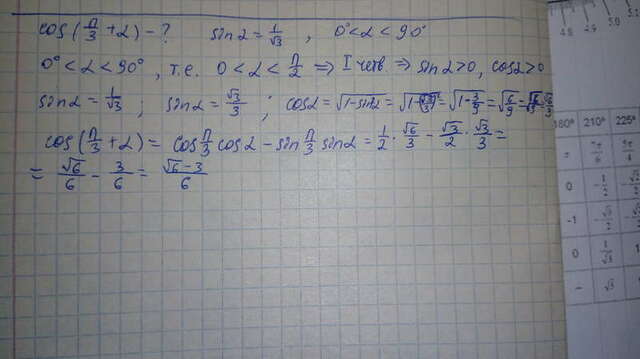 cos(π/3 + α) - ? sin α = 1/√3 , 0° < α < 90°
0° < α < 90° , т.е. 0 < α < π/2 ⇒ I четв. ⇒ sin α > 0, cos α > 0
sin α = 1/√3 ; sin α = √3/3 ; cos α = √(1-sin²α) = √(1-(√3/3)²) = √(1-3/9) = √(6/9) = √6/3
cos(π/3 + α) = cos π/3 cos α - sin π/3 sin α = 1/2 · √6/3 - √3/2 · √3/3 =
= √6/6 - 3/6 = √6-3/6
4.8 4.9 5.0 5.1
180° 210° 225°
π 7π/6 5π/4
0 -1/2 -√2/2
-1 -√3/2
0 1/√3 1
- √3 1